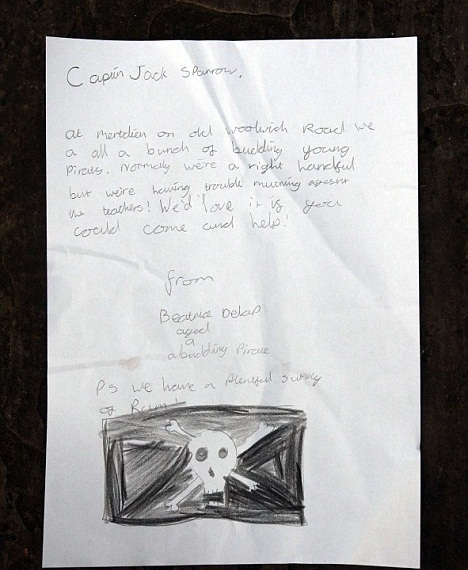 Captin Jack Sparrow,
At meridien on old woolwich Road we
a all a bunch of budding young
Pirates. Normally we're a right handful
but we're having trouble mutining agesnt
the teachers! We'd love it if you
could come and help!
from
Beatrice Delap
aged
9
a budding Pirate
P.S we have a plentiful supply
of Rum!